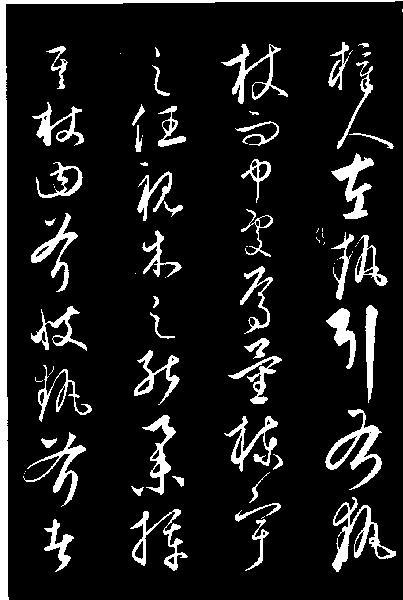 梓人左執引右執
杖而中處焉量棟宇
之任視木之能舉揮
其杖曰斧彼執斧者